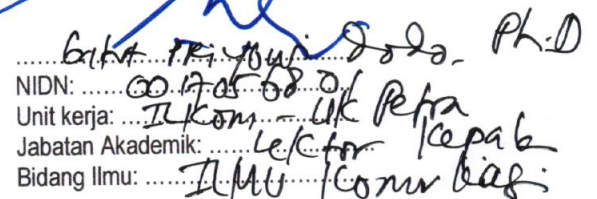 Gatut Priyowidodo, Ph.D
NIDN: 0017056801
Unit kerja: ILKom - UK Petra
Jabatan Akademik: Lektor Kepala
Bidang Ilmu: ILMU Komunikasi